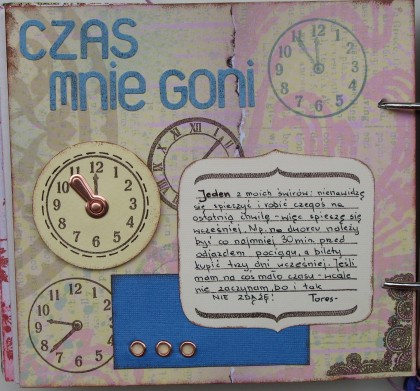 CZAS
mnie GONI
Jeden z moich świrów: nienawidzę
się spieszyć i robić czegoś na
ostatnią chwilę - więc spieszę się
wcześniej. Np. na dworcu należy
być co najmniej 30 min przed
odjazdem pociągu, a bilety
kupić trzy dni wcześniej. Jeśli
mam na coś mało czasu - wcale
nie zaczynam, bo i tak
NIE ZDĄŻĘ! Tores-